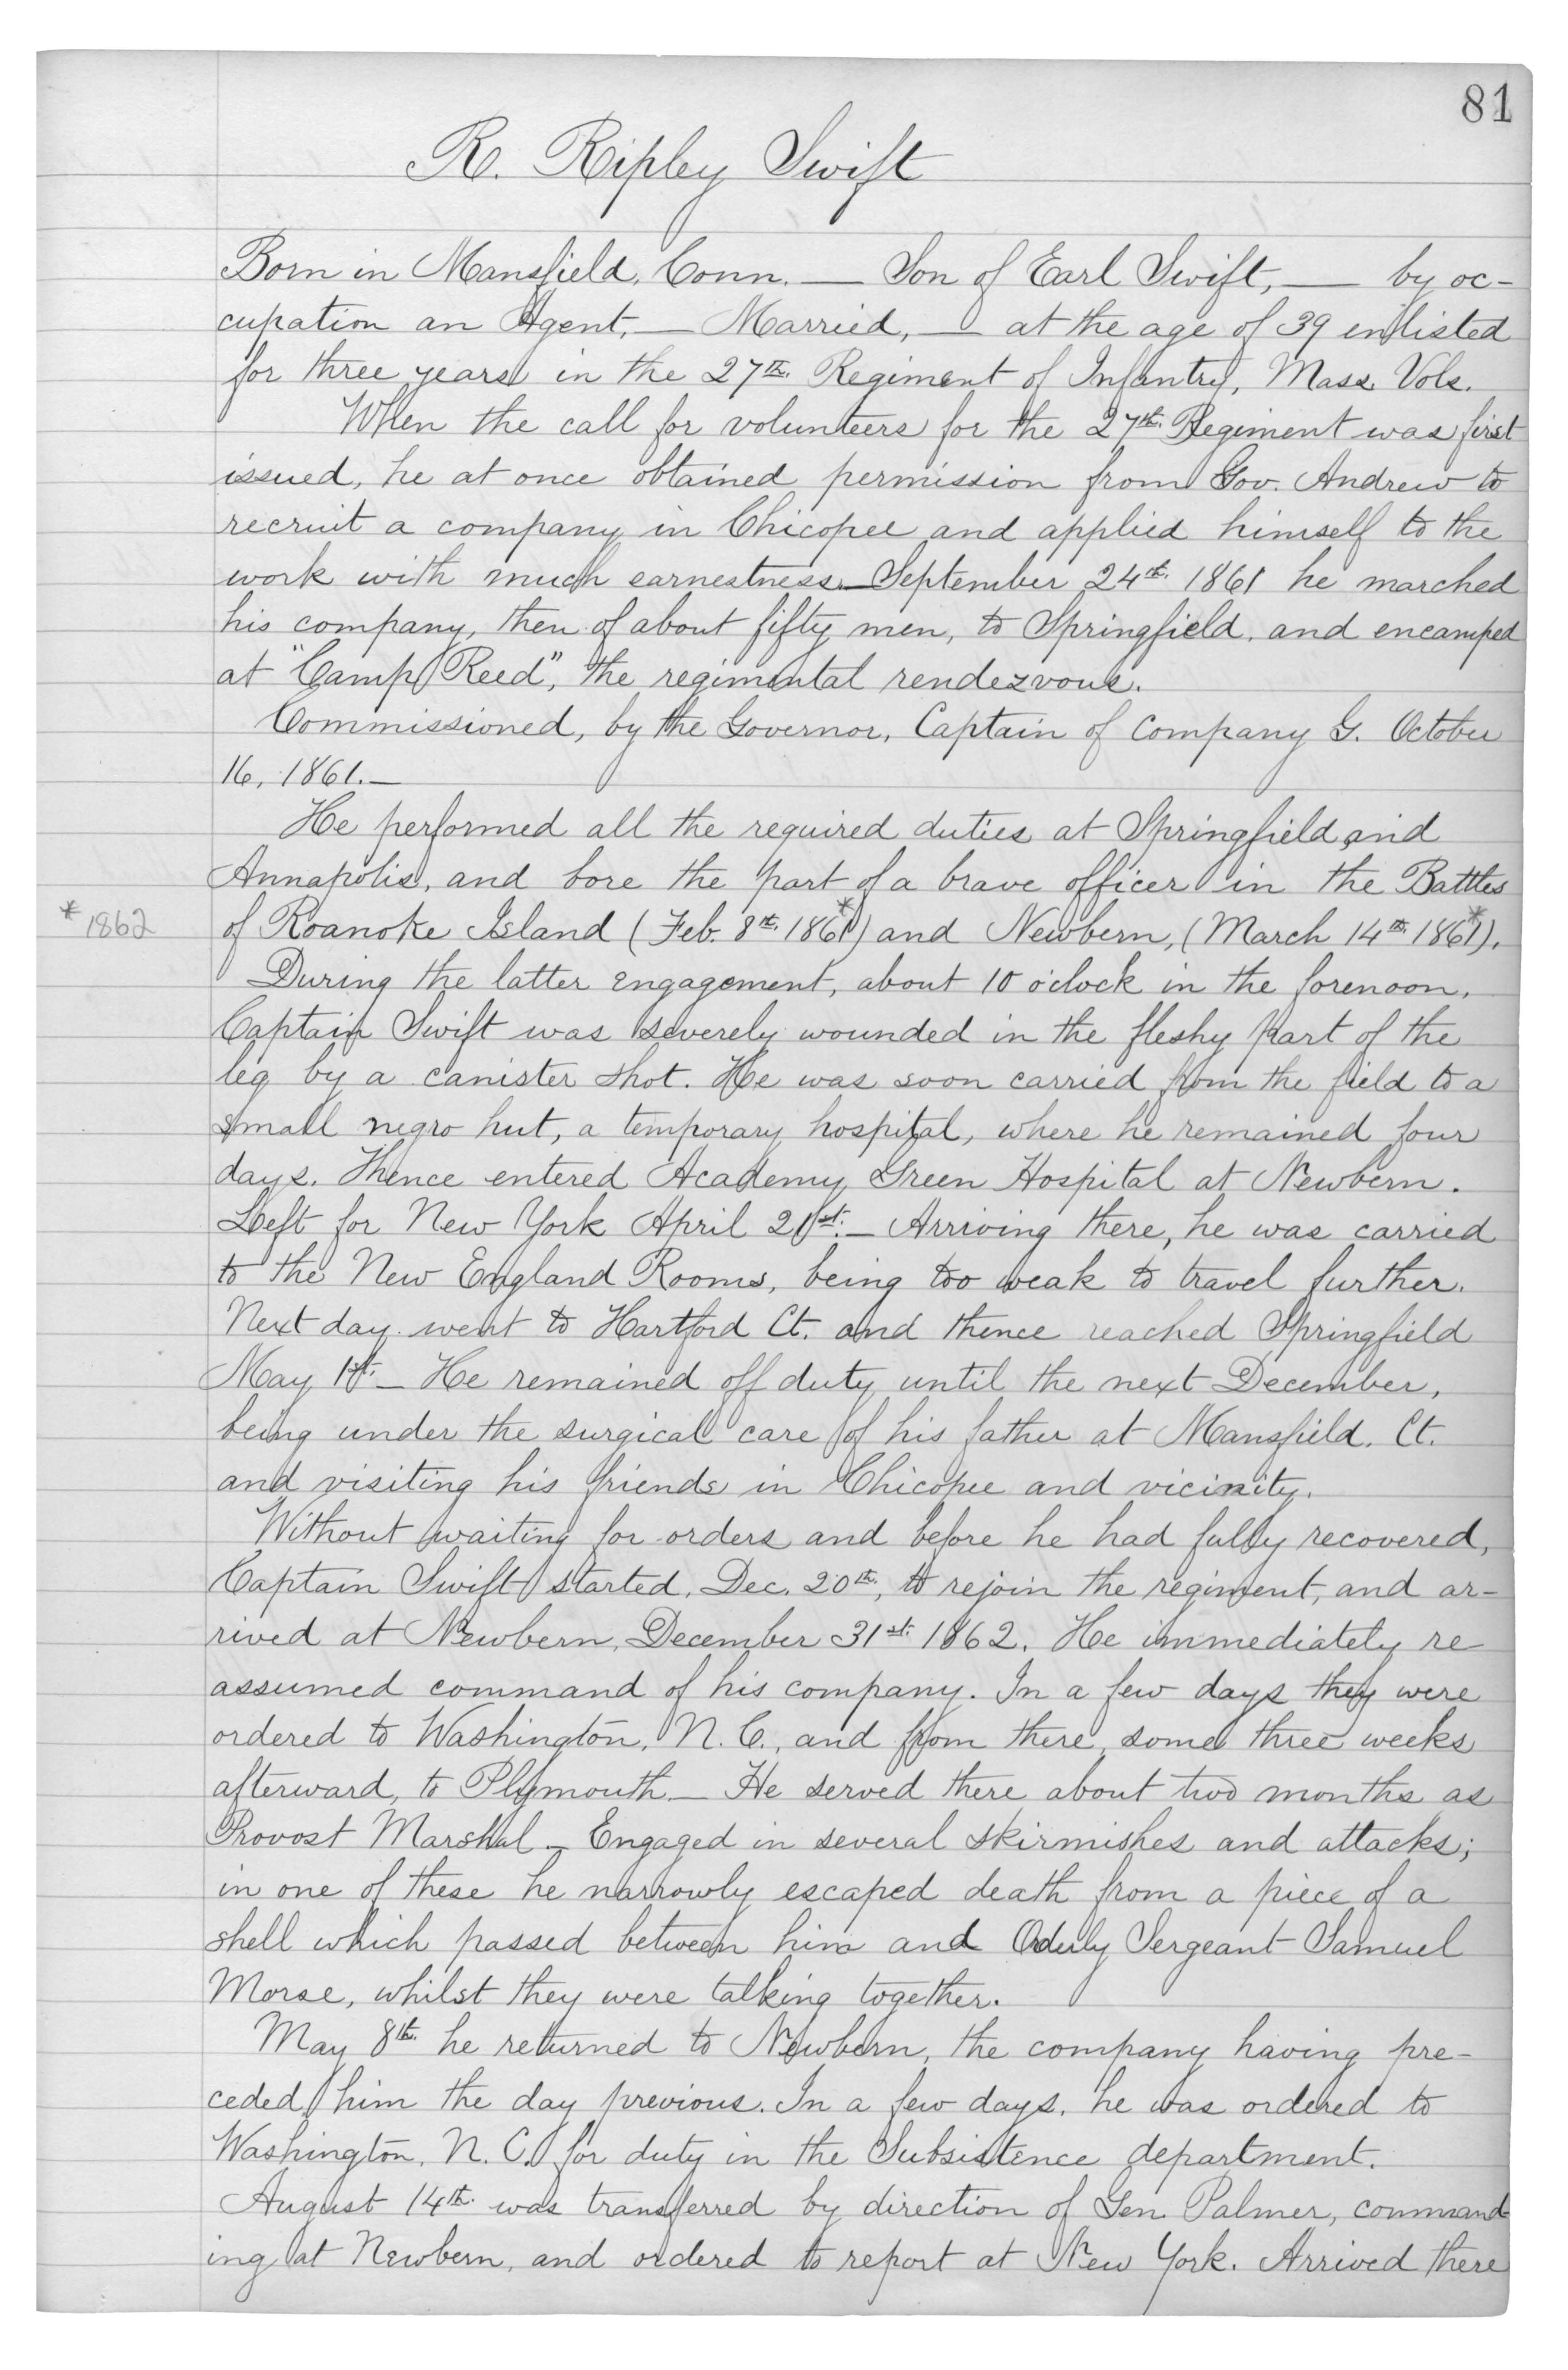 81
R. Ripley Swift
Born in Mansfield, Conn. — Son of Earl Swift, — by oc-
cupation an Agent, — Married, — at the age of 39 enlisted
for three years in the 27th. Regiment of Infantry, Mass. Vols.
When the call for volunteers for the 27th. Regiment was first
issued, he at once obtained permission from Gov. Andrew to
recruit a company in Chicopee and applied himself to the
work with much earnestness. — September 24th. 1861 he marched
his company, then of about fifty men, to Springfield, and encamped
at "Camp Reed", the regimental rendezvous.
Commissioned, by the Governor, Captain of Company G. October
16, 1861. —
He performed all the required duties at Springfield and
Annapolis, and bore the part of a brave officer in the Battles
* 1862 of Roanoke Island (Feb. 8th. 1861*) and Newbern, (March 14th. 1861*).
During the latter engagement, about 10 o'clock in the forenoon,
Captain Swift was severely wounded in the fleshy part of the
leg by a canister shot. He was soon carried from the field to a
small negro hut, a temporary hospital, where he remained four
days. Thence entered Academy Green Hospital at Newbern.
Left for New York April 21st. — Arriving there, he was carried
to the New England Rooms, being too weak to travel further.
Next day went to Hartford Ct. and thence reached Springfield
May 1st. — He remained off duty until the next December,
being under the surgical care of his father at Mansfield, Ct.
and visiting his friends in Chicopee and vicinity.
Without waiting for orders and before he had fully recovered,
Captain Swift started, Dec. 20th, to rejoin the regiment, and ar-
rived at Newbern, December 31st. 1862. He immediately re-
assumed command of his company. In a few days they were
ordered to Washington, N. C., and from there, some three weeks
afterward, to Plymouth — He served there about two months as
Provost Marshal — Engaged in several skirmishes and attacks;
in one of these he narrowly escaped death from a piece of a
shell which passed between him and Orderly Sergeant Samuel
Morse, whilst they were talking together.
May 8th. he returned to Newbern, the company having pre-
ceded him the day previous. In a few days, he was ordered to
Washington, N. C. for duty in the Subsistence department.
August 14th. was transferred by direction of Gen. Palmer, command-
ing at Newbern, and ordered to report at New York. Arrived there